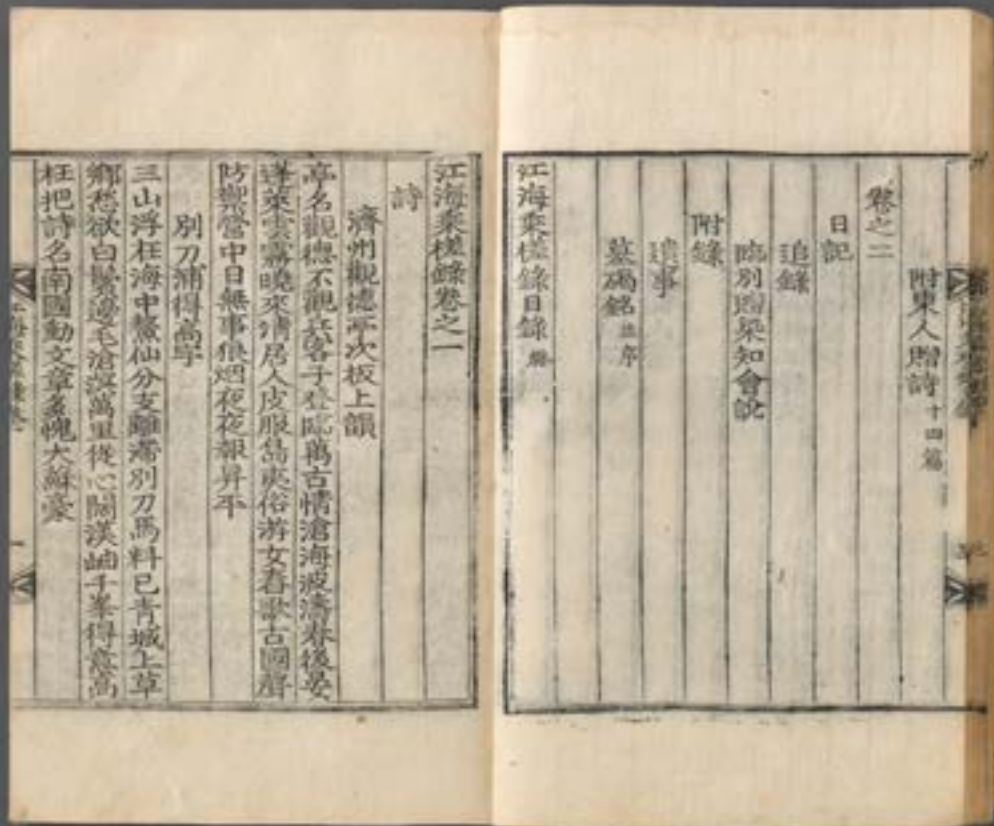 附東人贈詩 十四篇
卷之二
日記
追錄
臨別贈梁知會說
附錄
遺事
墓碣銘 並序
江海乘槎錄目錄 終
江海乘槎錄卷之一
詩
濟州觀德亭次板上韻
亭名觀德不觀兵客子登臨萬古情滄海波濤春後晏
蓬萊雲霧曉來清居人皮服島夷俗游女舂歌古國聲
防禦營中日無事狼烟夜夜報昇平
別刀浦得高字
三山浮在海中鰲仙分支離滯別刀馬料已靑城上草
鄕愁欲白鬂邊毛滄溟萬里從心闊漢峀千峯得意高
枉把詩名南國動文章多愧大蘇豪